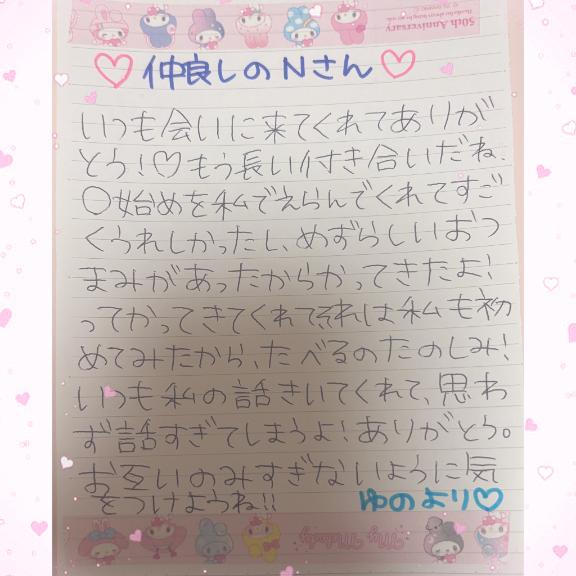 50th Anniversary
仲良しのNさん
いつも会いに来てくれてありが
とう!♡もう長い付き合いだね.
〇始めを私でえらんでくれてすご
くうれしかったし、めずらしいおつ
まみがあったからかってきたよ!
ってかってきてくれて。それは私も初
めてみたから、たべるのたのしみ!
いつも私の話きいてくれて、思わ
ず話すぎてしまうよ!ありがとう。
お互いのみすぎないように気
をつけようね!!
ゆのより♡
My Melody